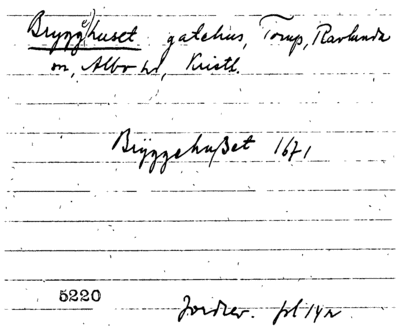 Brygg(e)huset gatehus, Torup, Ravlunda
sn, Albo hd, Kristl.
Bryggehußet 1671
5220
Jordrev. fol 142